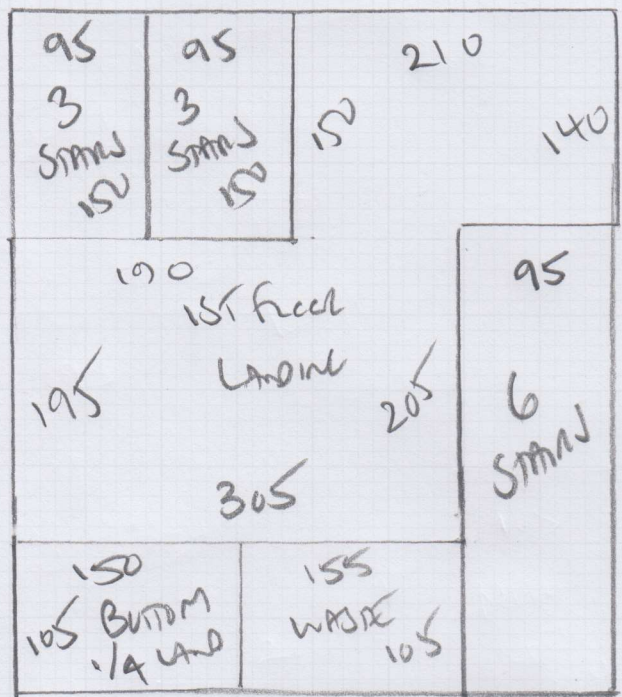 95
3
STAIRS
150
95
3
STAIRS
150
210
150
140
190
1ST FLOOR
LANDING
195
205
305
95
6
STAIRS
150
105 BOTTOM
1/4 LAND
155
WASTE
105